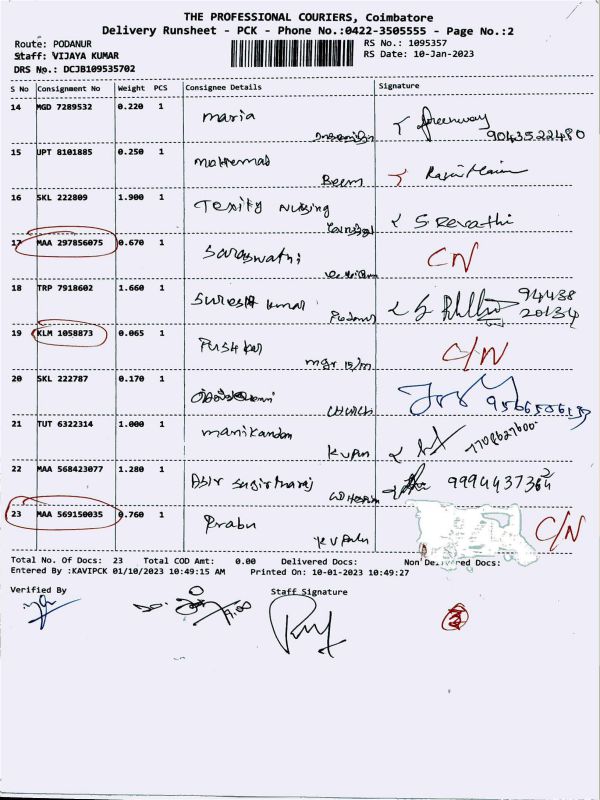 THE PROFESSIONAL COURIERS, Coimbatore
Delivery Runsheet - PCK - Phone No.:0422-3505555 - Page No.:2
Route: PODANUR RS No.: 1095357
Staff: VIJAYA KUMAR RS Date: 10-Jan-2023
DRS No.: DCJB109535702
S No Consignment No Weight PCS Consignee Details Signature
14 MGD 7289532 0.220 1 maria Greenway
9043522480
15 UPT 8101885 0.250 1 mohemad
Beem
16 SKL 222809 1.900 1 Texity Nursing S Revathi
17 MAA 297856075 0.670 1 Saraswathi C/N
18 TRP 7918602 1.660 1 Suresh kumar 94438
Podanur 20134
19 KLM 1058873 0.065 1 Pushkar C/N
mgr 15/m
20 SKL 222787 0.170 1
church
21 TUT 6322314 1.000 1 manikandan
K V Palu 7708627600
22 MAA 568423077 1.280 1 Asir Sugirtharaj 9994437364
23 MAA 569150035 0.760 1 Prabu C/N
K V Palu
Total No. Of Docs: 23 Total COD Amt: 0.00 Delivered Docs: Non Delivered Docs:
Entered By :KAVIPCK 01/10/2023 10:49:15 AM Printed On: 10-01-2023 10:49:27
Verified By Staff Signature
3